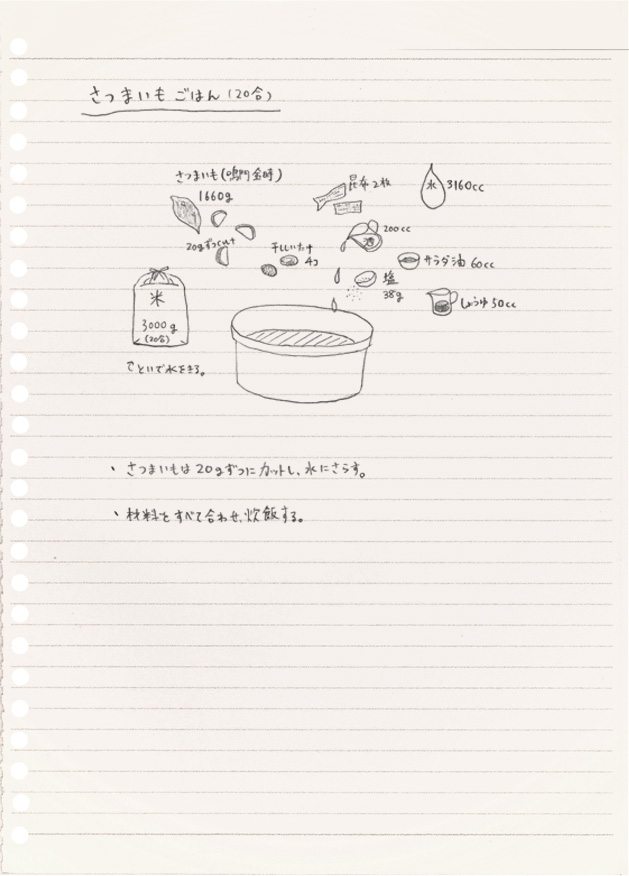 さつまいもごはん(20合)
さつまいも(鳴門金時)
1660g
昆布2枚
水 3160cc
20gずつcut
干ししいたけ
4コ
酒 200cc
サラダ油 60cc
塩
38g
しょうゆ 50cc
米
3000g
(20合)
↑といで水をきる。
・さつまいもは20gずつにカットし、水にさらす。
・材料をすべて合わせ、炊飯する。